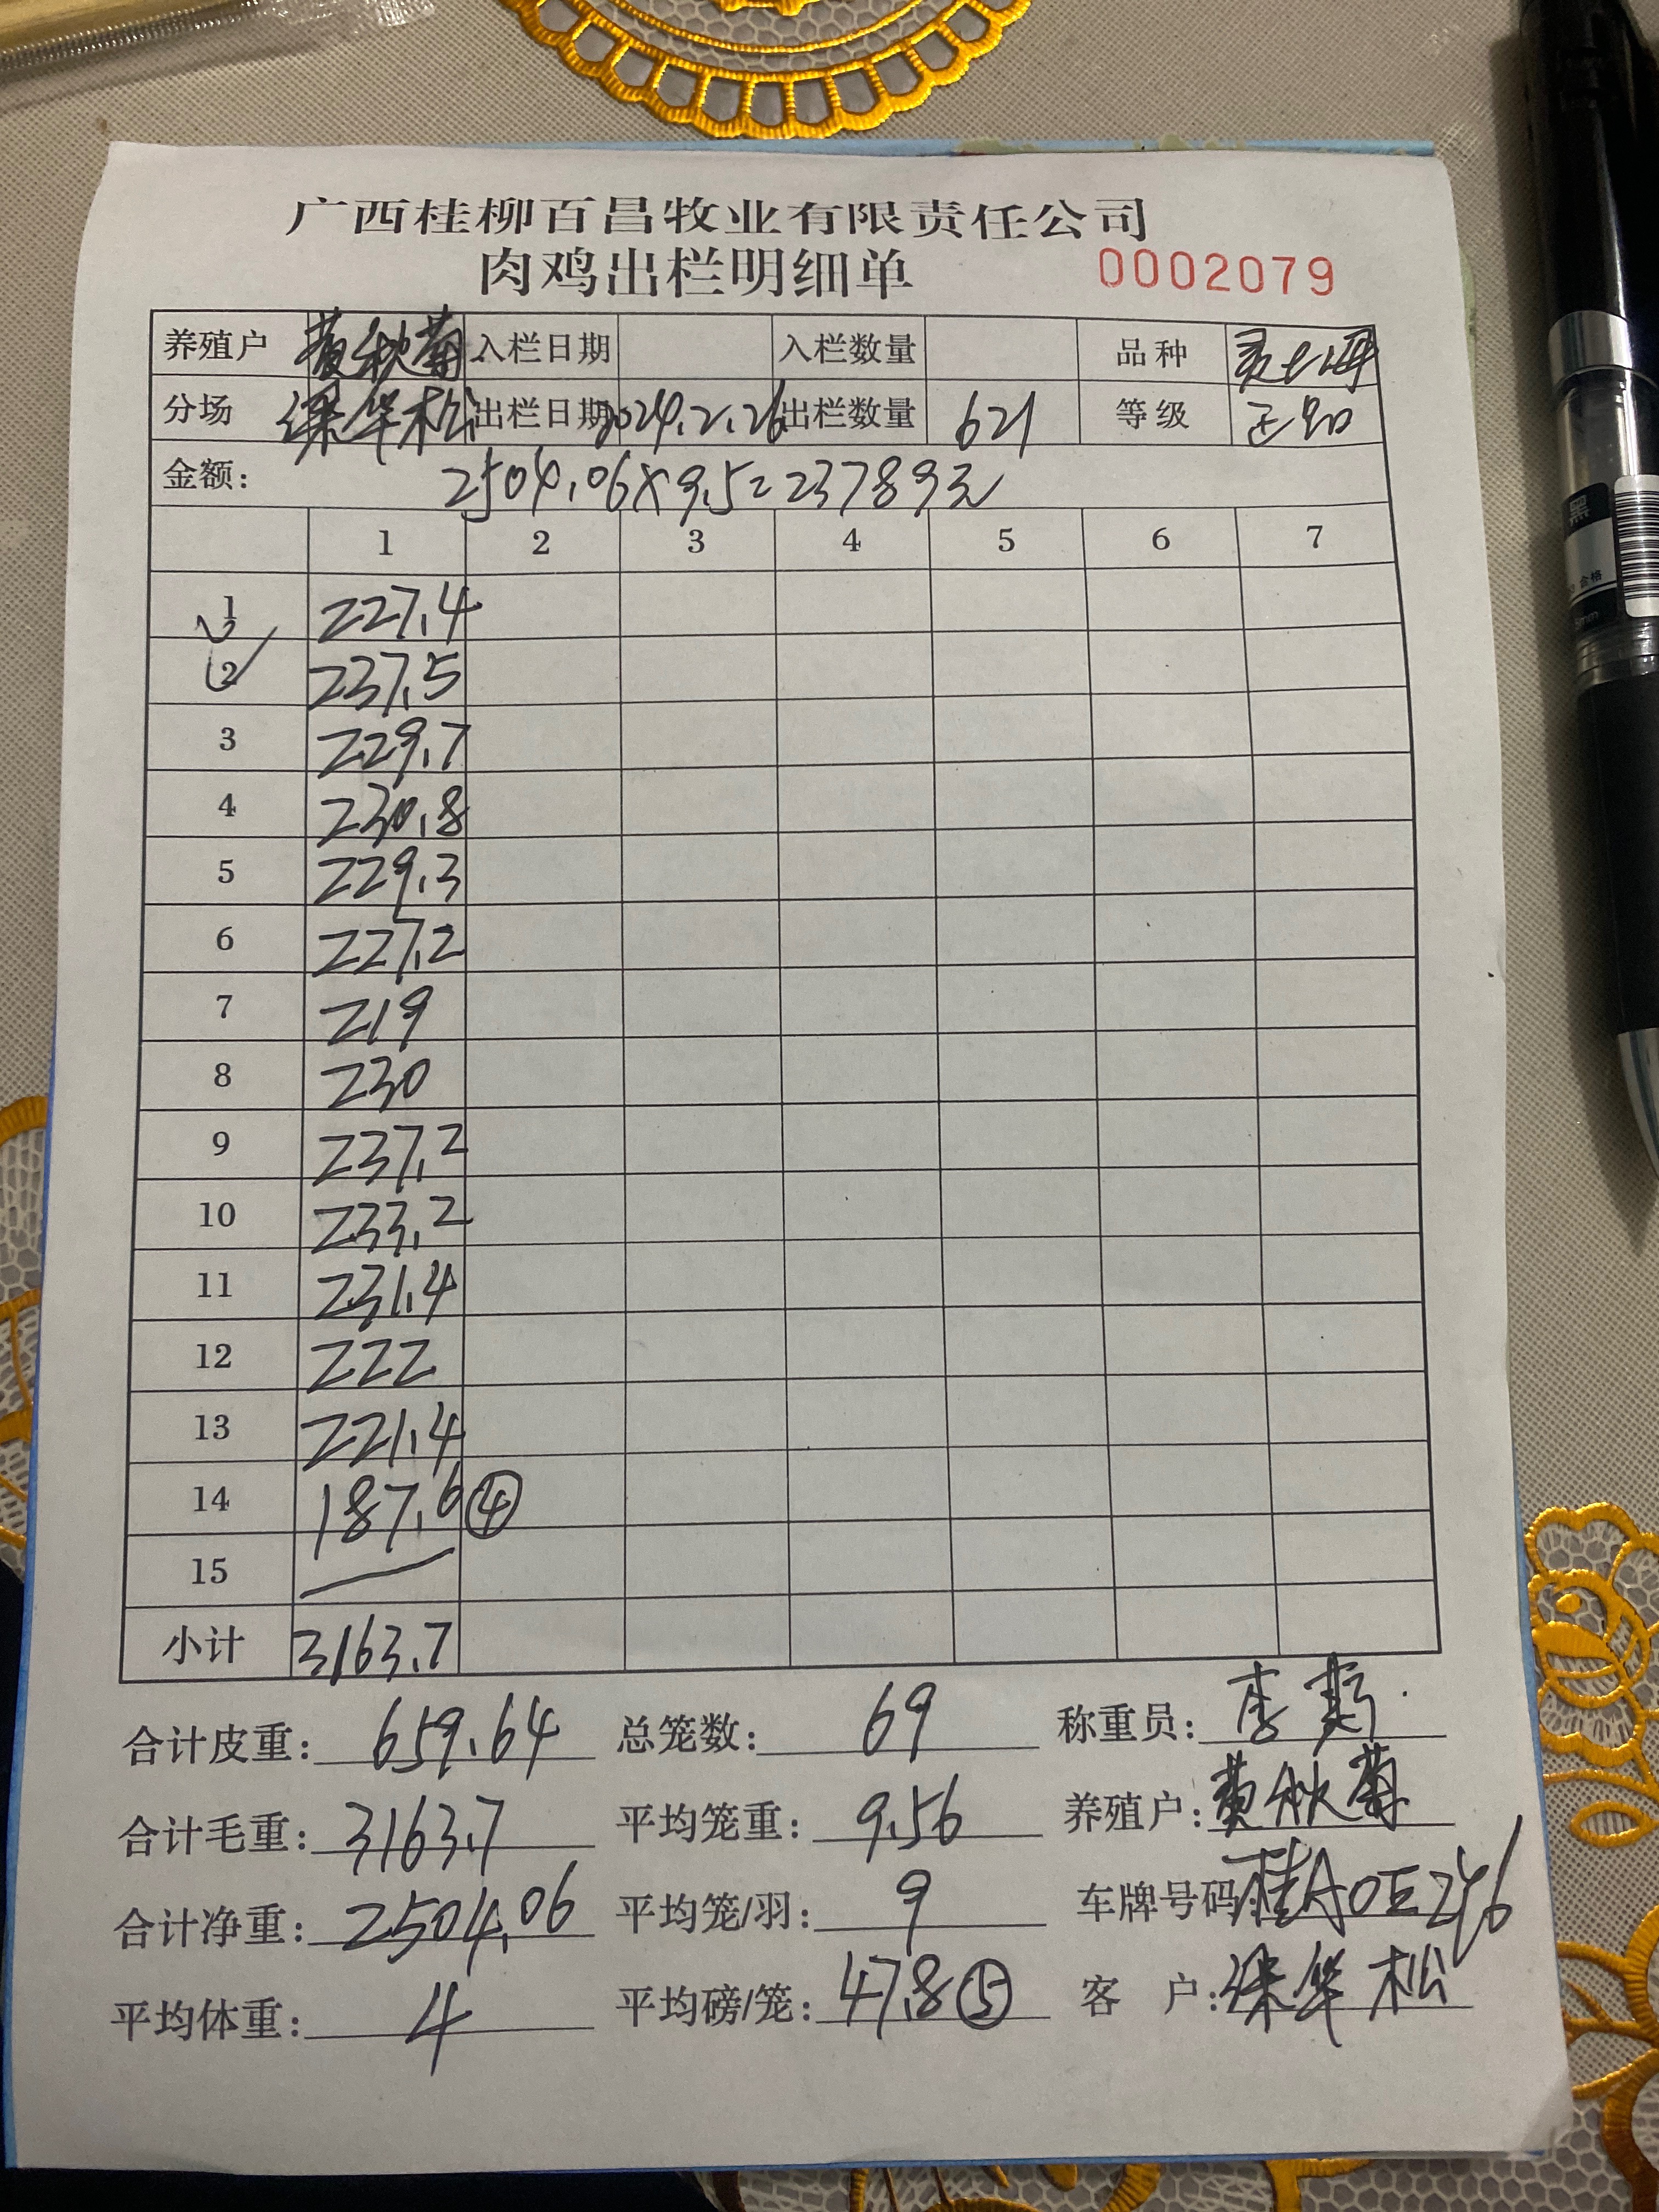 广西桂柳百昌牧业有限责任公司
肉鸡出栏明细单 0002079
养殖户 黄秋菊 入栏日期 入栏数量 品种
分场 梁华松 出栏日期 2024.2.26 出栏数量 621 等级 正品
金额: 2504.06×9.5=23789元
1 2 3 4 5 6 7
1 227.4
2 237.5
3 229.7
4 230.8
5 229.3
6 227.2
7 219
8 230
9 237.2
10 233.2
11 231.4
12 222
13 221.4
14 187.6 ④
15
小计 3163.7
合计皮重: 659.64 总笼数: 69 称重员: 李
合计毛重: 3163.7 平均笼重: 9.56 养殖户: 黄秋菊
合计净重: 2504.06 平均笼/羽: 9 车牌号码:
平均体重: 4 平均磅/笼: 47.8 ⑤ 客户: 梁华松
黑
合格